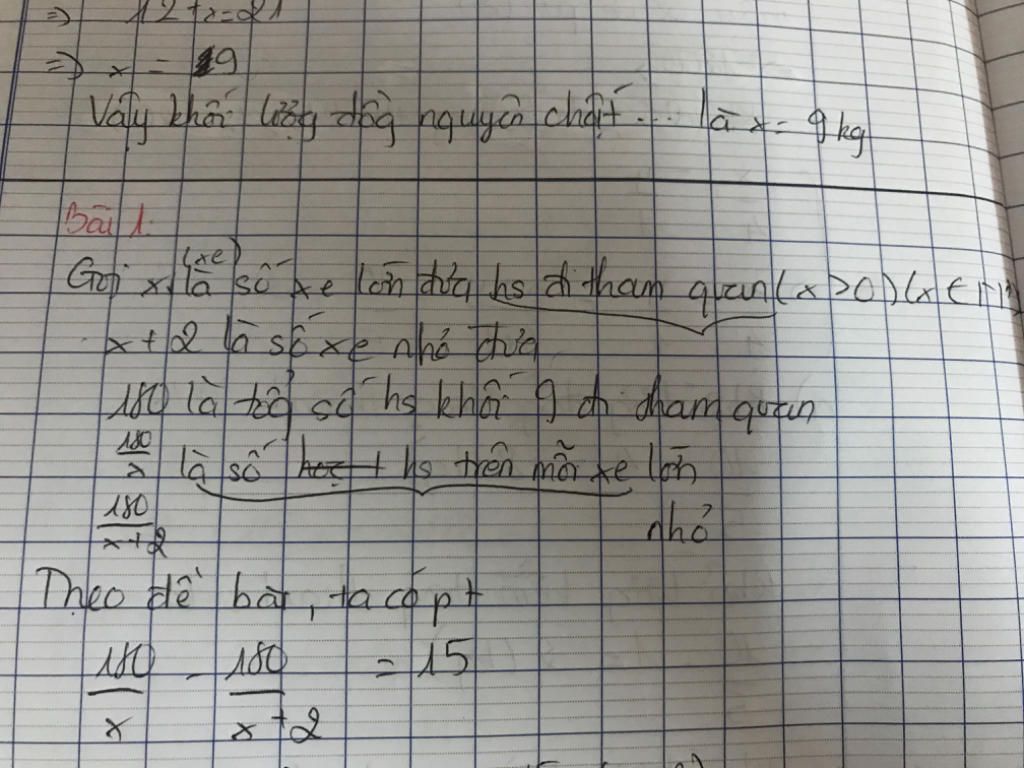 => 12+x=21
=> x = 9
Vậy khối lượng đồng nguyên chất ... là x = 9 kg
Bài 1.
(xe)
Gọi x là số xe lớn đưa hs đi tham quan (x>0) (x ∈
x+2 là số xe nhỏ đưa
180 là tổng số hs khối 9 đi tham quan
180/x là số hs trên mỗi xe lớn
180/x+2 nhỏ
Theo đề bài, ta có pt
180/x - 180/x+2 = 15